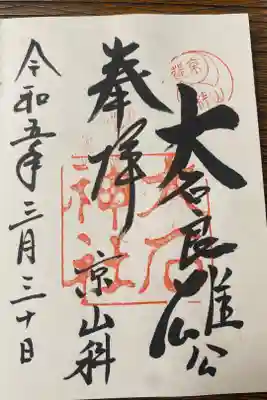 大石良雄公
奉拝
大石
神社
京山科
令和五年三月三十日